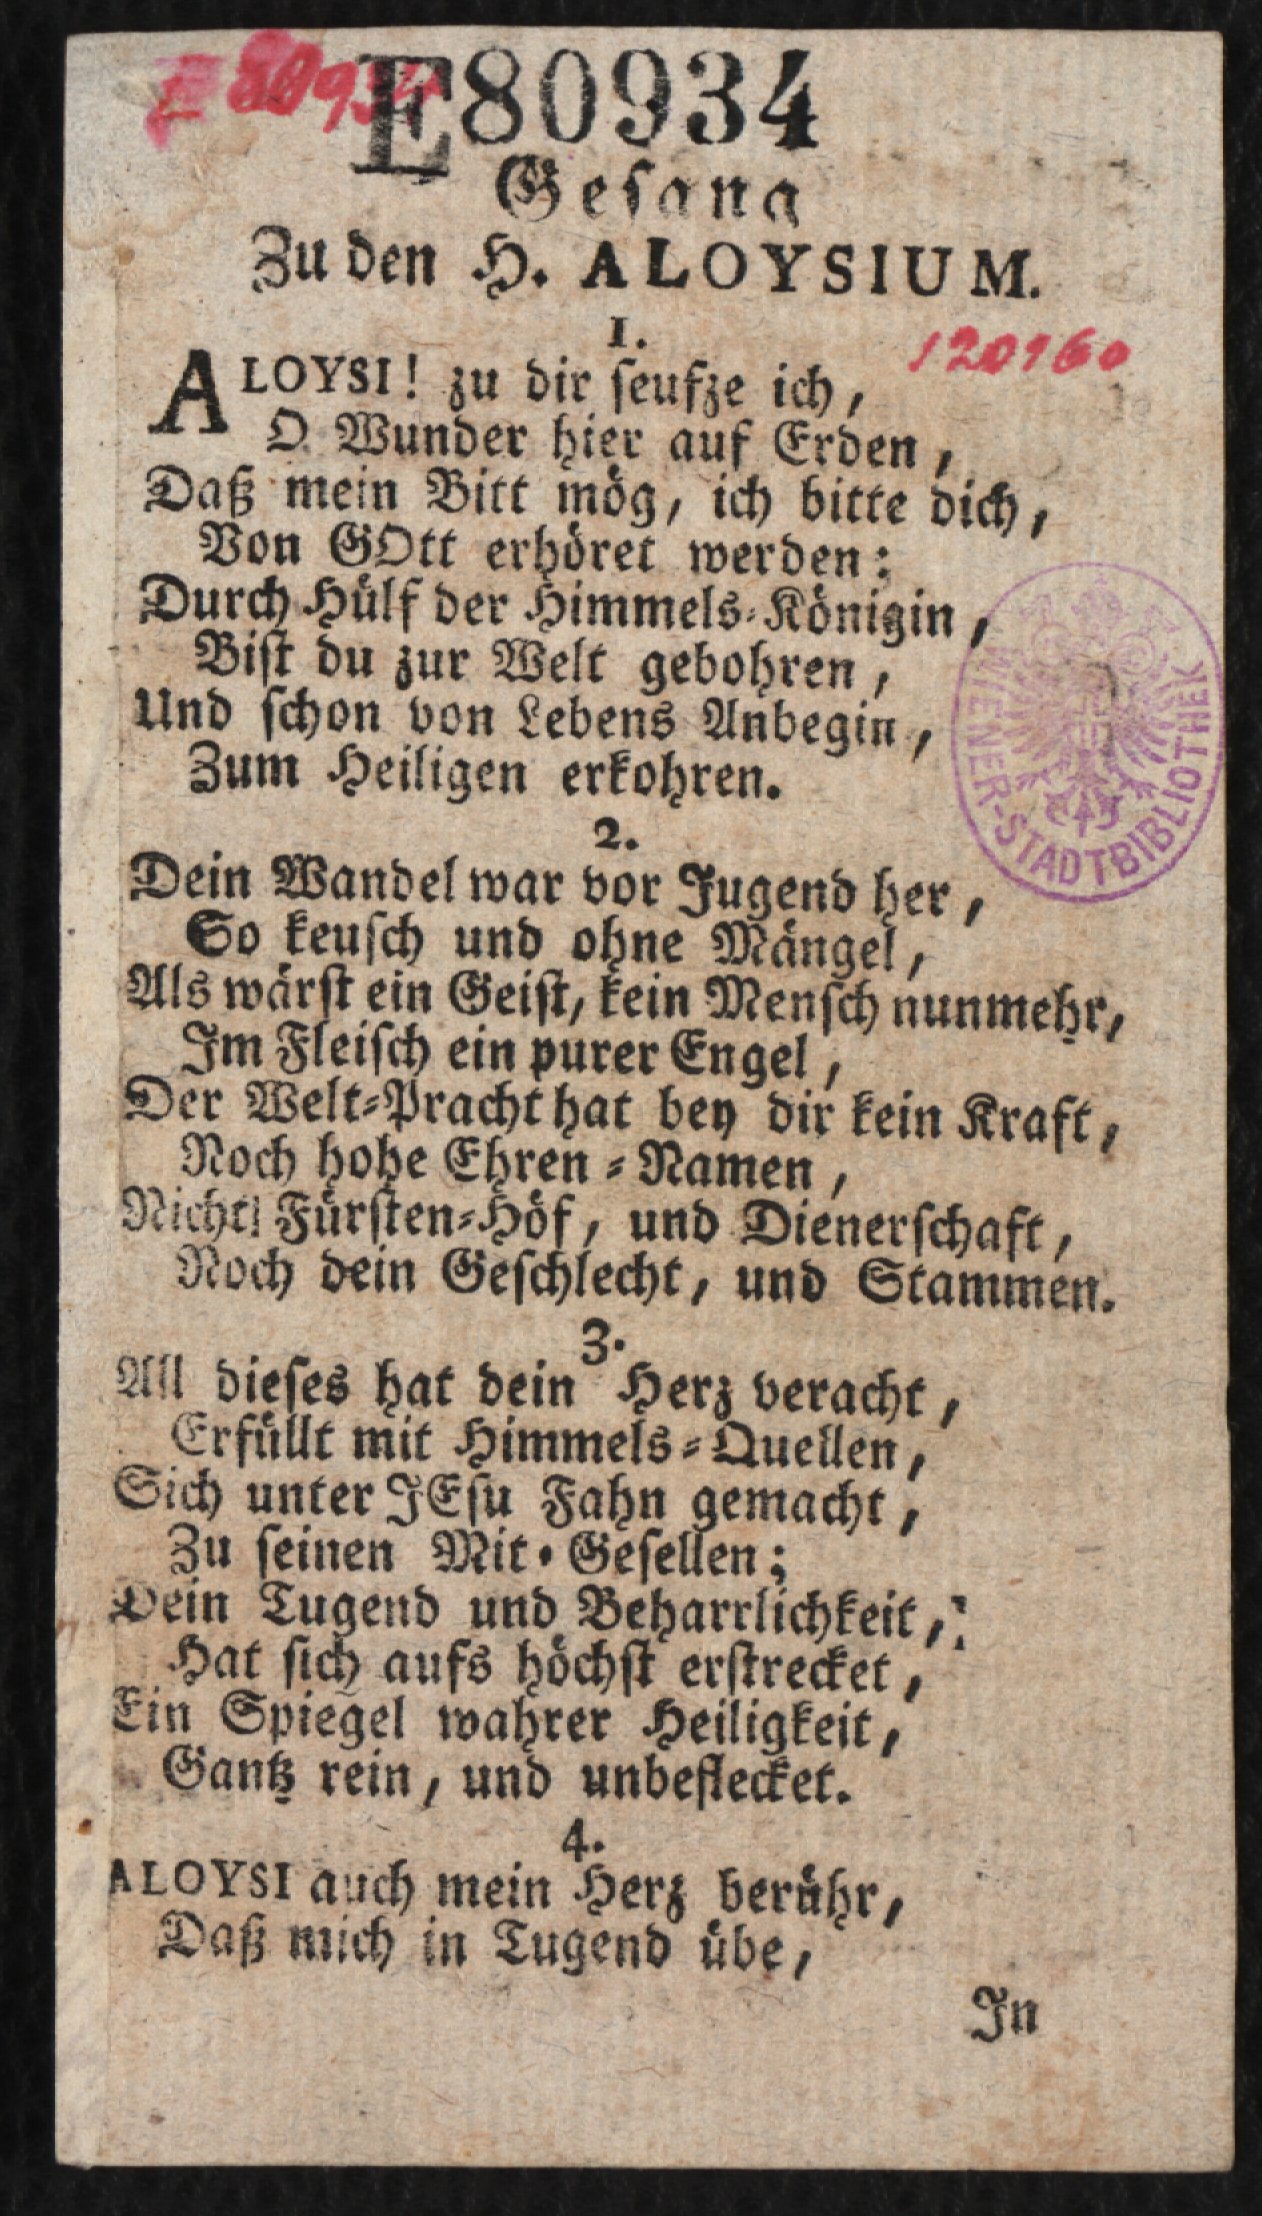 E 80934
E80934
Gesang
Zu den H. ALOYSIUM.
1.
120160
ALOYSI! zu dir seufze ich,
O Wunder hier auf Erden,
Daß mein Bitt mög, ich bitte dich,
Von GOtt erhöret werden:
Durch Hülf der Himmels-Königin,
Bist du zur Welt gebohren,
Und schon von Lebens Anbegin,
Zum Heiligen erkohren.
WIENER-STADTBIBLIOTHEK
2.
Dein Wandel war vor Jugend her,
So keusch und ohne Mängel,
Als wärst ein Geist, kein Mensch nunmehr,
Im Fleisch ein purer Engel,
Der Welt-Pracht hat bey dir kein Kraft,
Noch hohe Ehren-Namen,
Nicht Fürsten-Höf, und Dienerschaft,
Noch dein Geschlecht, und Stammen.
3.
All dieses hat dein Herz veracht,
Erfüllt mit Himmels-Quellen,
Sich unter JEsu Fahn gemacht,
Zu seinen Mit-Gesellen;
Dein Tugend und Beharrlichkeit,
Hat sich aufs höchst erstrecket,
Ein Spiegel wahrer Heiligkeit,
Gantz rein, und unbeflecket.
4.
ALOYSI auch mein Herz berühr,
Daß mich in Tugend übe,
In